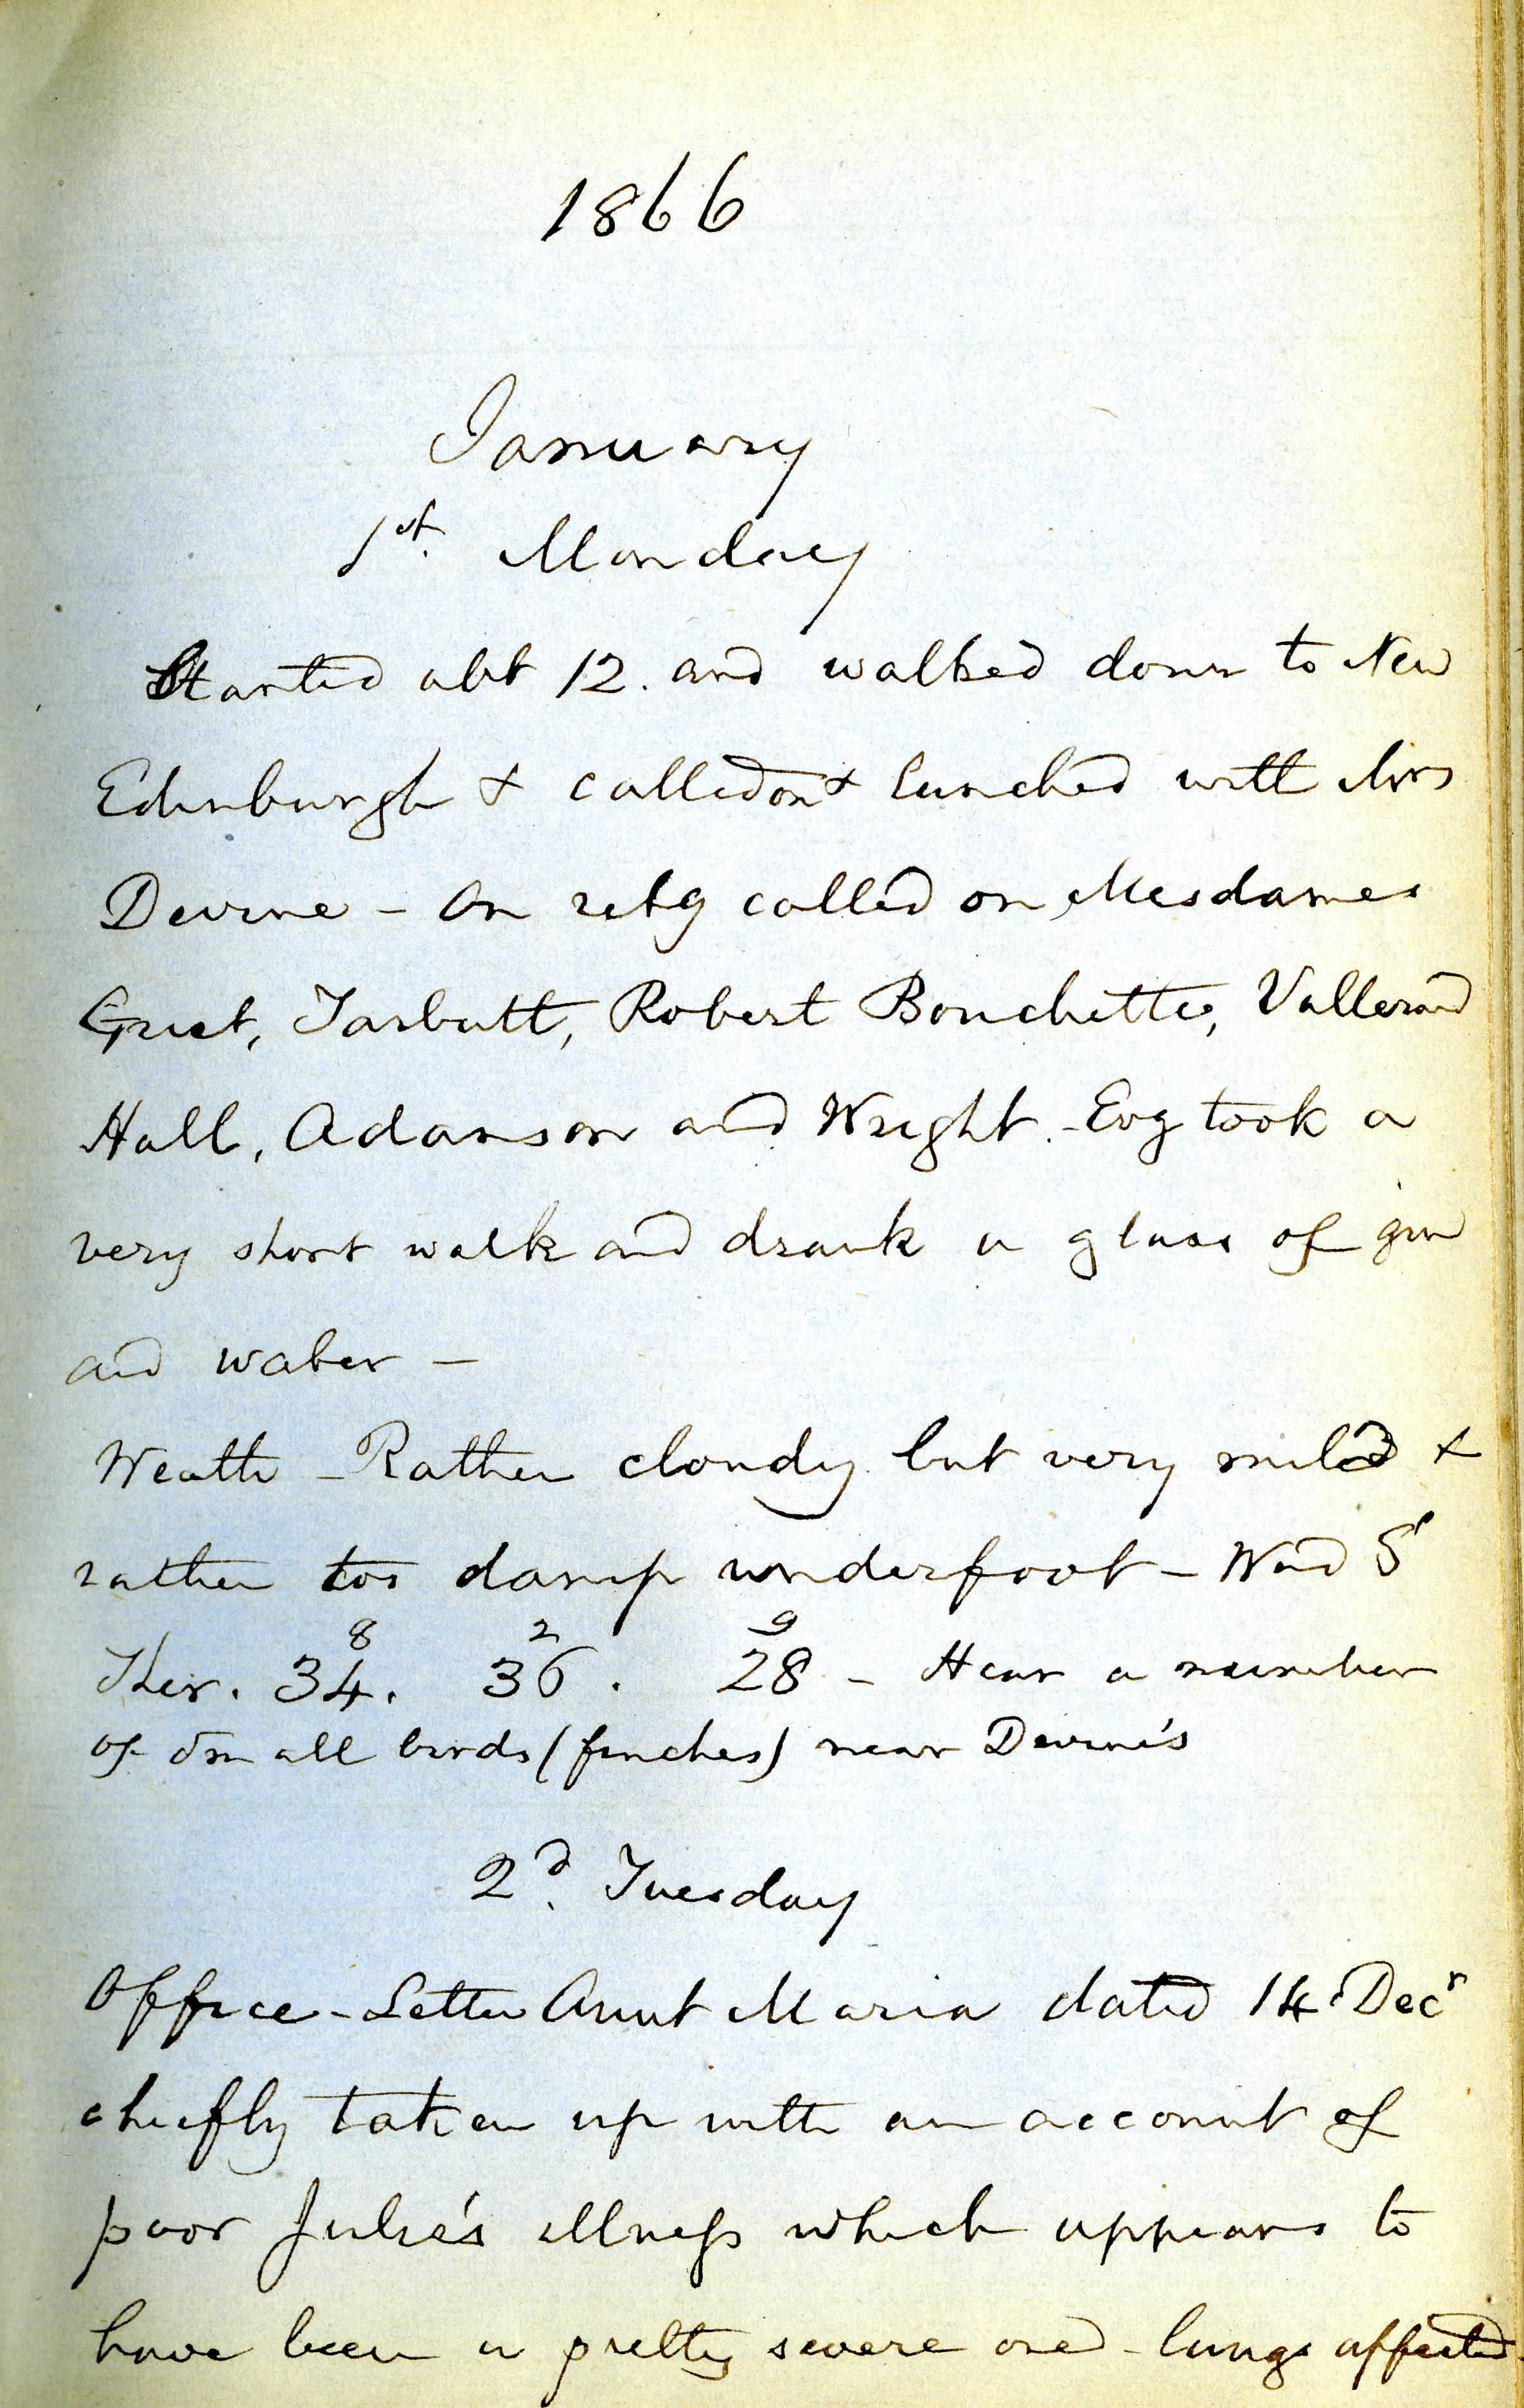 1866
January
1st. Monday
Started abt 12. and walked down to New
Edinburgh & called on & lunched with Mrs
Devine - On retg called on Mesdames
Grist, Tarbutt, Robert Bouchette, Vallerand
Hall, Adamson and Wright. - Evg took a
very short walk and drank a glass of gin
and water -
Weathr - Rather cloudy but very mild &
rather too damp underfoot - Wind S
8 2 9
Ther. 34. 36. 28 - Hear a number
of small birds (finches) near Devine's
2d. Tuesday
Office - Letter Aunt Maria dated 14 Decr
chiefly taken up with an account of
poor Julie's illness which appears to
have been a pretty severe one - lungs affected -